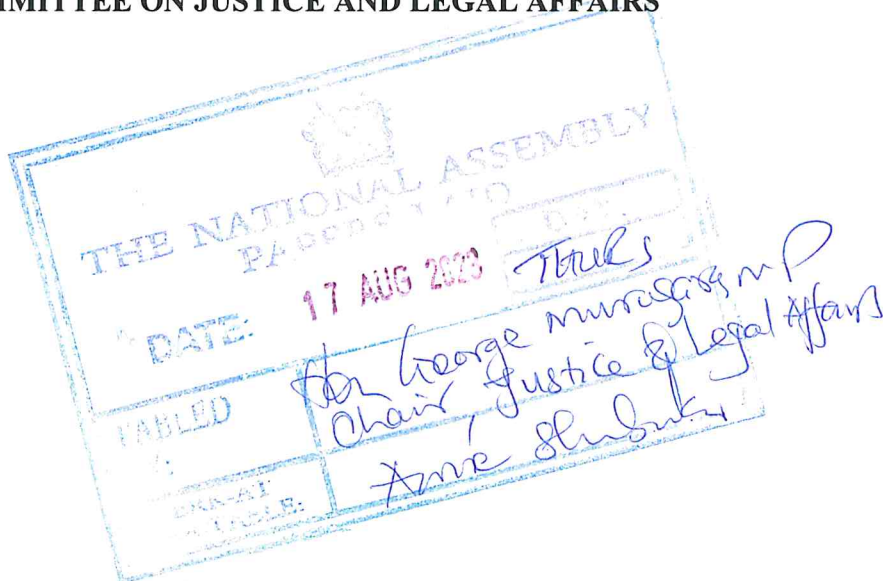 MMITTEE ON JUSTICE AND LEGAL AFFAIRS
THE NATIONAL ASSEMBLY
PAPERS LAID
DATE: 17 AUG 2023 THURS
DAY
Hon George Murugara MP
TABLED
BY:
Chair, Justice & Legal Affairs
CLERK-AT
THE-TABLE: